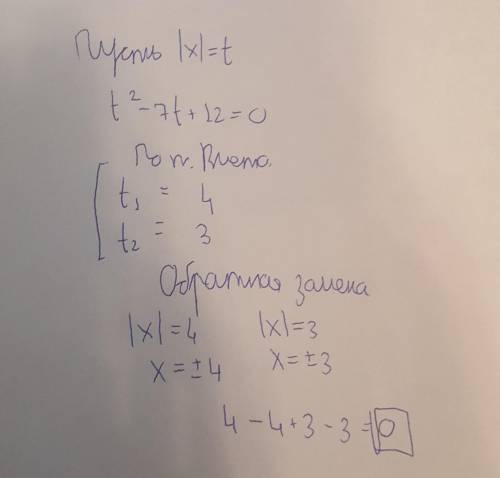 Пусть |x|=t
t²-7t+12=0
По т. Виета.
t₁ = 4
t₂ = 3
Обратная замена
|x|=4 |x|=3
x=±4 x=±3
4-4+3-3=0